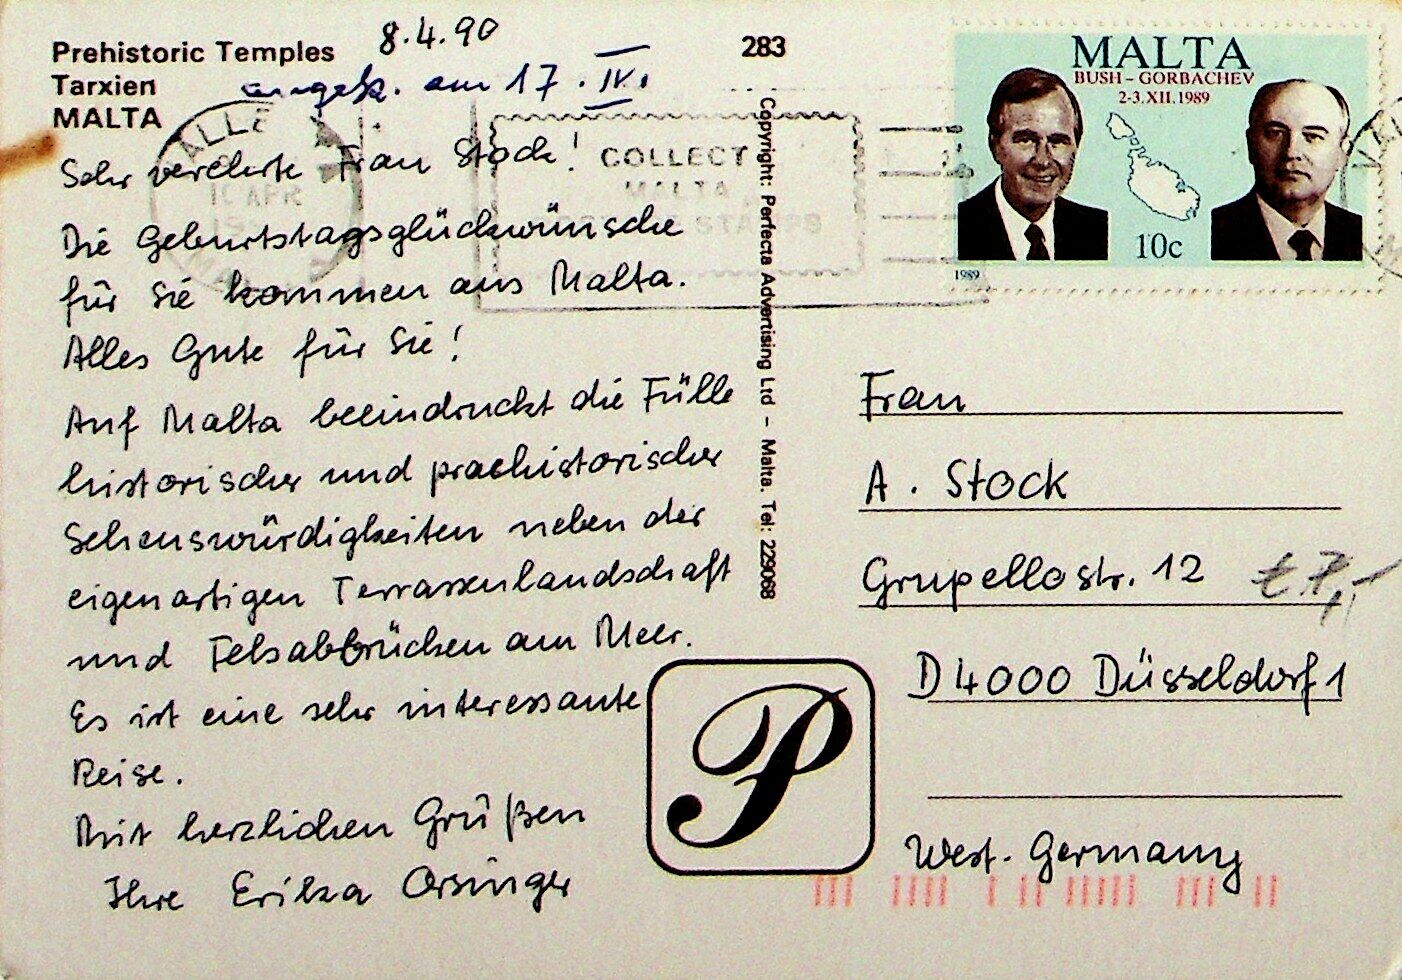 Prehistoric Temples
Tarxien
MALTA
8.4.90
angek. am 17. IV.
283
Sehr verehrte Frau Stock!
Die Geburtstagsglückwünsche
für Sie kommen aus Malta.
Alles Gute für Sie!
Auf Malta beeindruckt die Fülle
historischer und praehistorischer
Sehenswürdigkeiten neben der
eigenartigen Terrassenlandschaft
und Felsabbrüchen am Meer.
Es ist eine sehr interessante
Reise.
Mit herzlichen Grüßen
Ihre Erika Orsinger
COLLECT
MALTA
STAMPS
10 APR
Copyright: Perfecta Advertising Ltd – Malta. Tel: 229068
MALTA
BUSH – GORBACHEV
2-3.XII.1989
10c
1989
Frau
A. Stock
Grupellostr. 12
D 4000 Düsseldorf 1
West-Germany
P